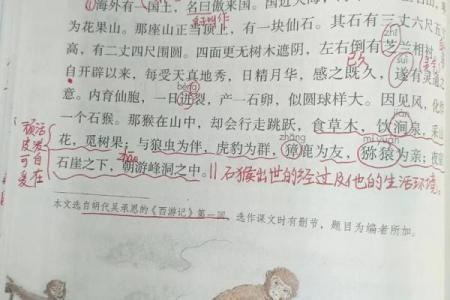 ①海外有一国土,名曰傲来国。国近大海,
为花果山。那座山正当顶上,有一块仙石。其石有三丈六尺五寸
高,有二丈四尺围圆。四面更无树木遮阴,左右倒有芝兰相衬。
自开辟以来,每受天真地秀,日精月华,感之既久,遂有灵通之
意。内育仙胞,一日迸裂,产一石卵,似圆球样大。因见风,化作
一个石猴。那猴在山中,却会行走跳跃,食草木,饮涧泉,采山
花,觅树果;与狼虫为伴,虎豹为群,獐鹿为友,猕猿为亲;夜宿
石崖之下,朝游峰洞之中。‖石猴出世的经过及他的生活环境。
本文选自明代吴承恩的《西游记》第一回,选作课文时有删节,题目为编者所加。